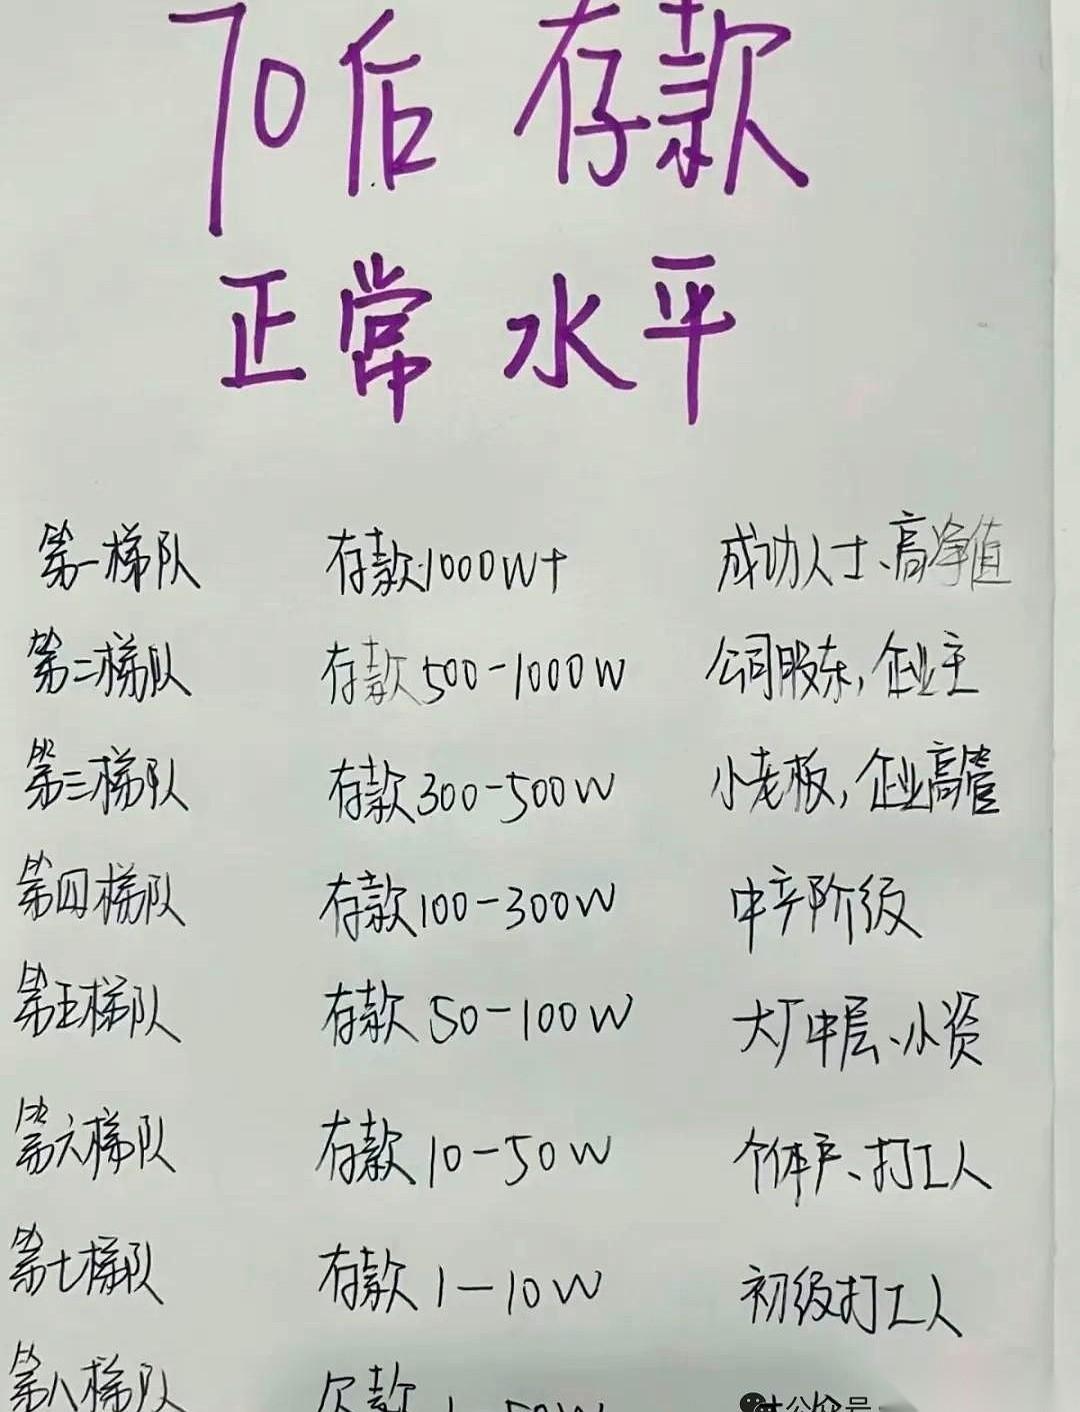 70后 存款
正常 水平
第一梯队 存款1000W+ 成功人士、高净值
第二梯队 存款500-1000W 公司股东,企业主
第三梯队 存款300-500W 小老板,企业高管
第四梯队 存款100-300W 中产阶级
第五梯队 存款50-100W 大厂中层、小资
第六梯队 存款10-50W 个体户、打工人
第七梯队 存款1-10W 初级打工人
第八梯队 欠款
公众号